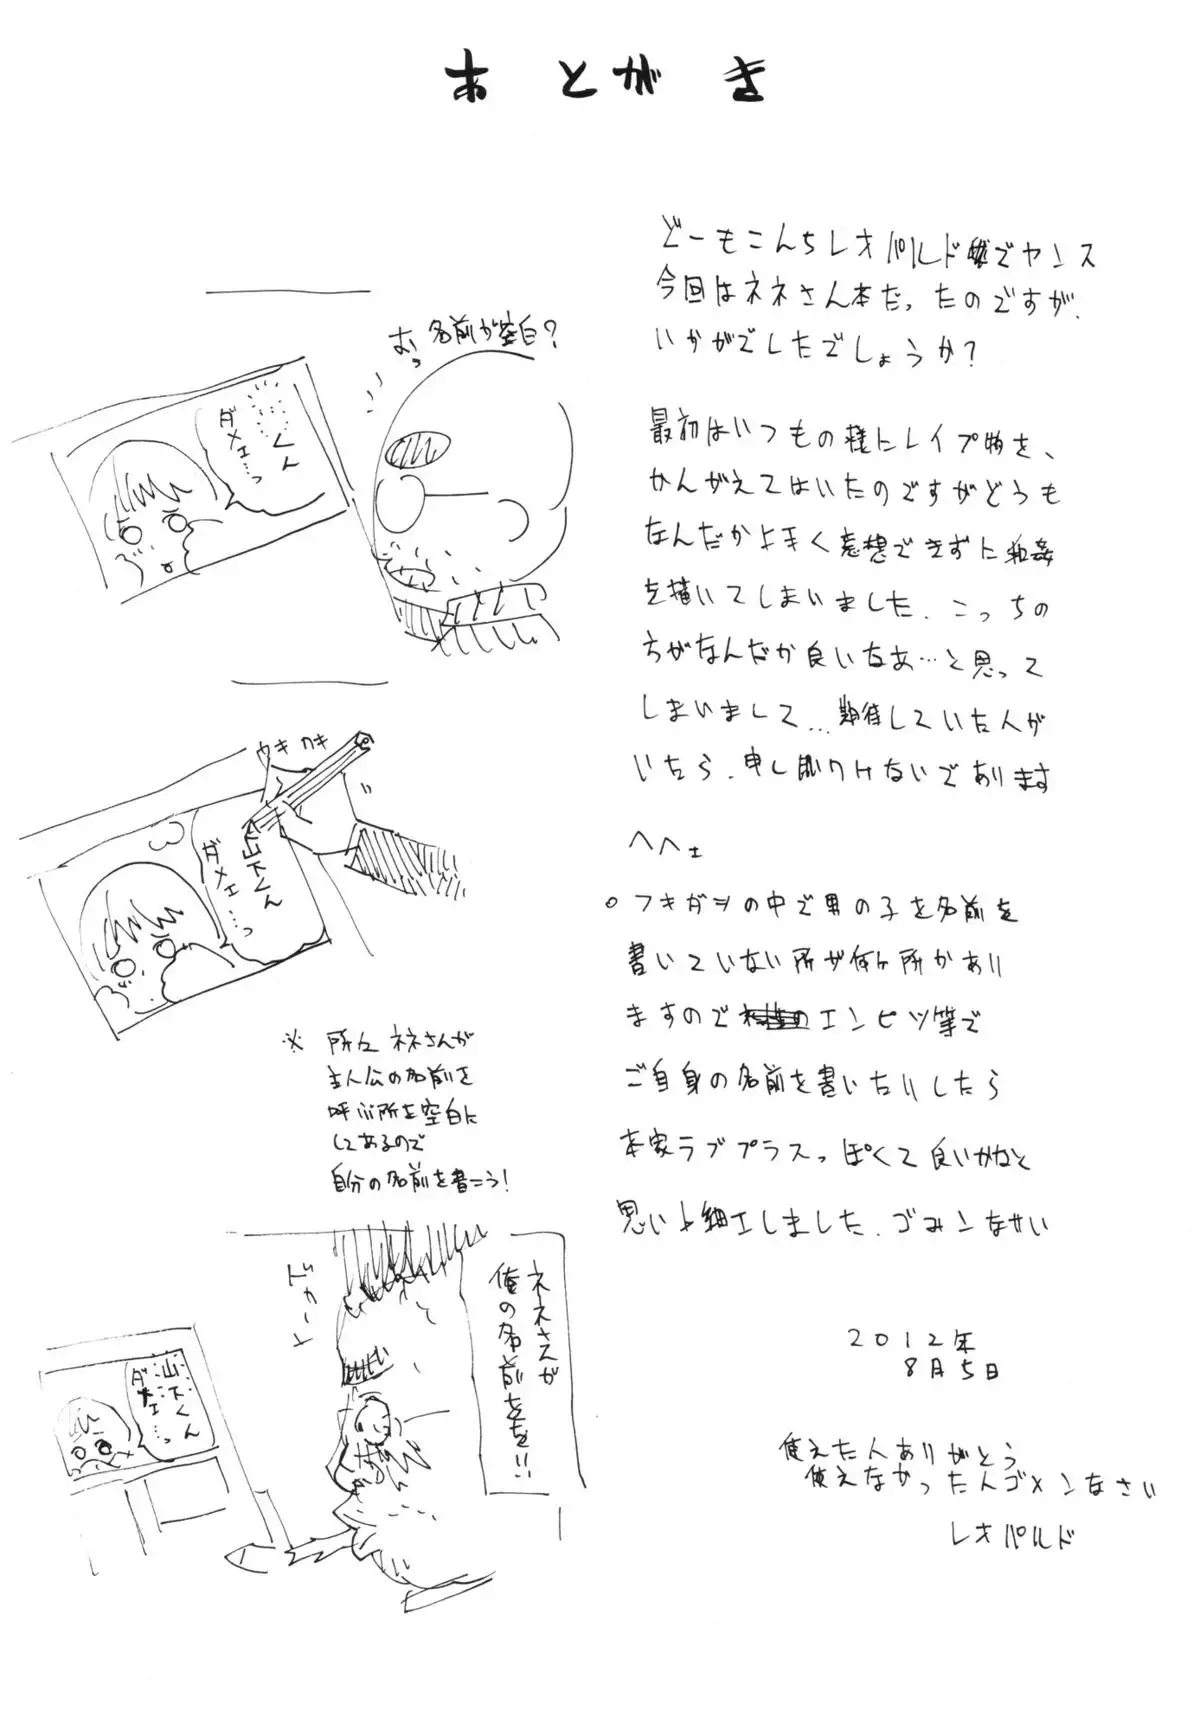 あとがき
どーもこんちレオパルドでヤンス
今回はネネさん本だったのですが、
いかがでしたでしょうか？
最初はいつもの様にレイプ物を、
かんがえてはいたのですがどうも
なんだかよく想できずに和姦
を描いてしまいました。こっちの
方がなんだか良いなあ…と思って
しまいまして…期待していた人が
いたら、申し訳けないであります
へへェ
○フキダシの中で男の子を名前を
書いていない所が何ヶ所かあり
ますのでエンピツ等で
ご自身の名前を書いたりしたら
本家ラブプラスっぽくて良いかなと
思い小細工しました。ゴメンなさい
2012年
8月5日
使えた人ありがとう
使えなかった人ゴメンなさい
レオパルド
むっ名前が空白？
くん
ダメェ…っ
カキカキ
山下くん
ダメェ…っ
※所々ネネさんが
主人公の名前を
呼ぶ所を空白に
してあるので
自分の名前を書こう！
ネネさんが
俺の名前をを!!
山下くん
ダメェ…っ